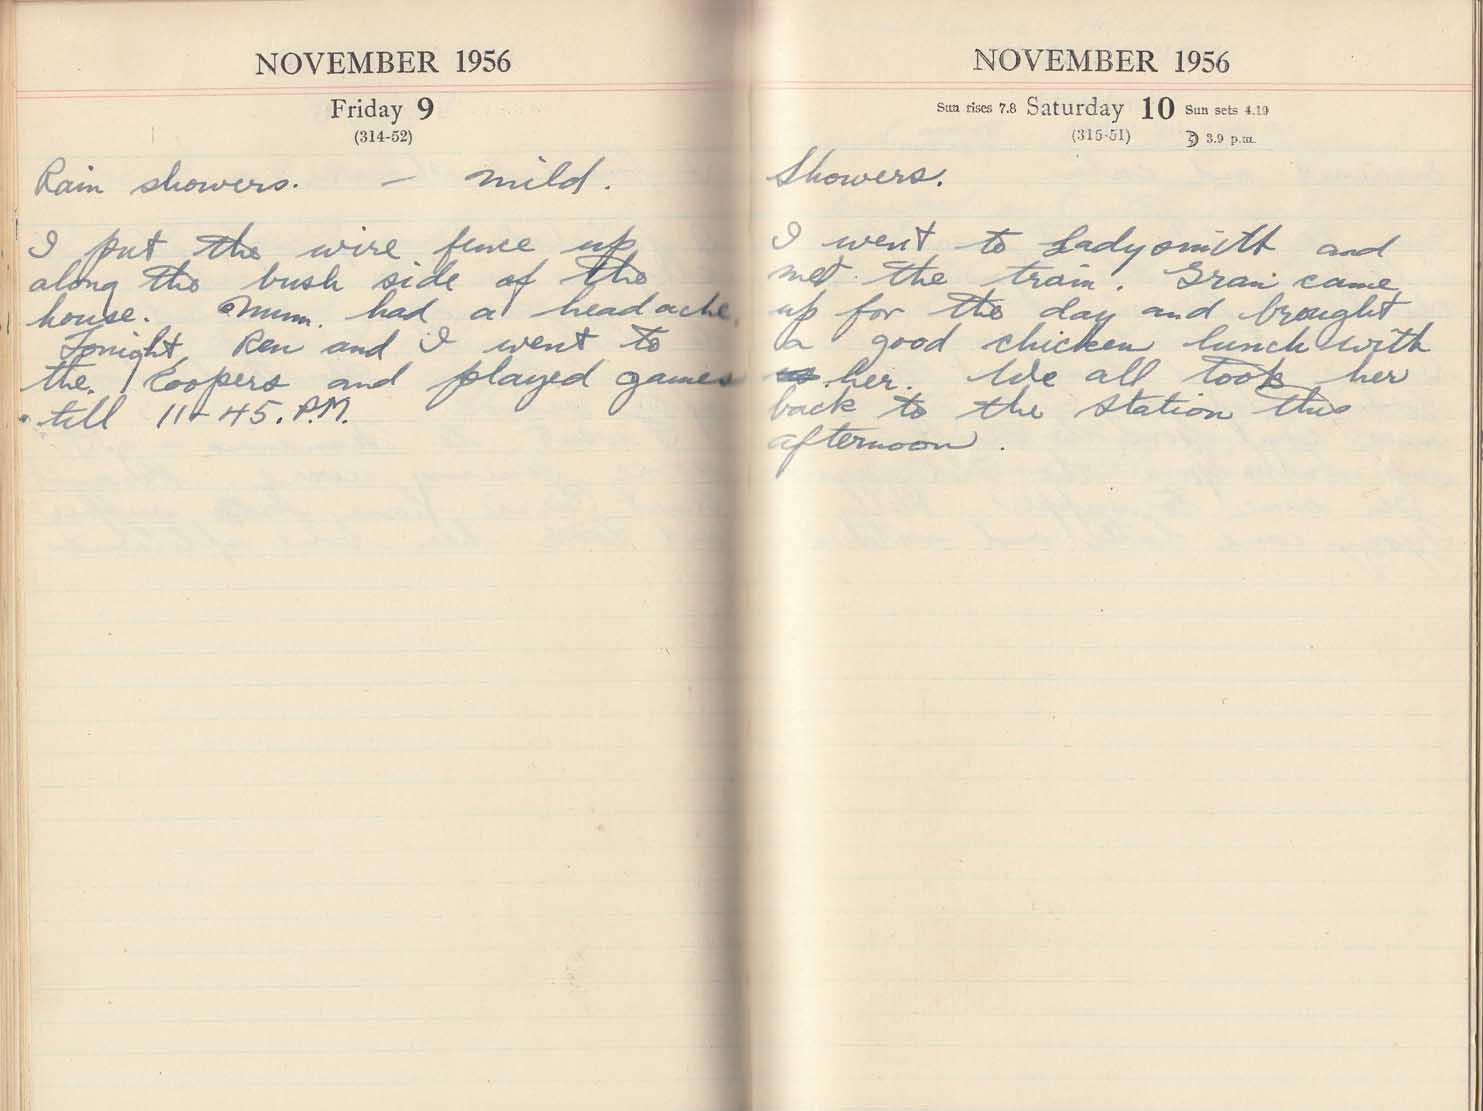 NOVEMBER 1956
Friday 9
(314-52)
Rain showers. — mild.
I put the wire fence up
along the bush side of the
house. Mum. had a headache.
Tonight, Rew and I went to
the. Coopers and played games
till 11-45. P.M.
NOVEMBER 1956
Sun rises 7.8 Saturday 10 Sun sets 4.19
(315-51) 3.9 p.m.
Showers.
I went to Ladysmith and
met the train. Gran came
up for the day and brought
a good chicken lunch with
her. We all took her
back to the station this
afternoon.